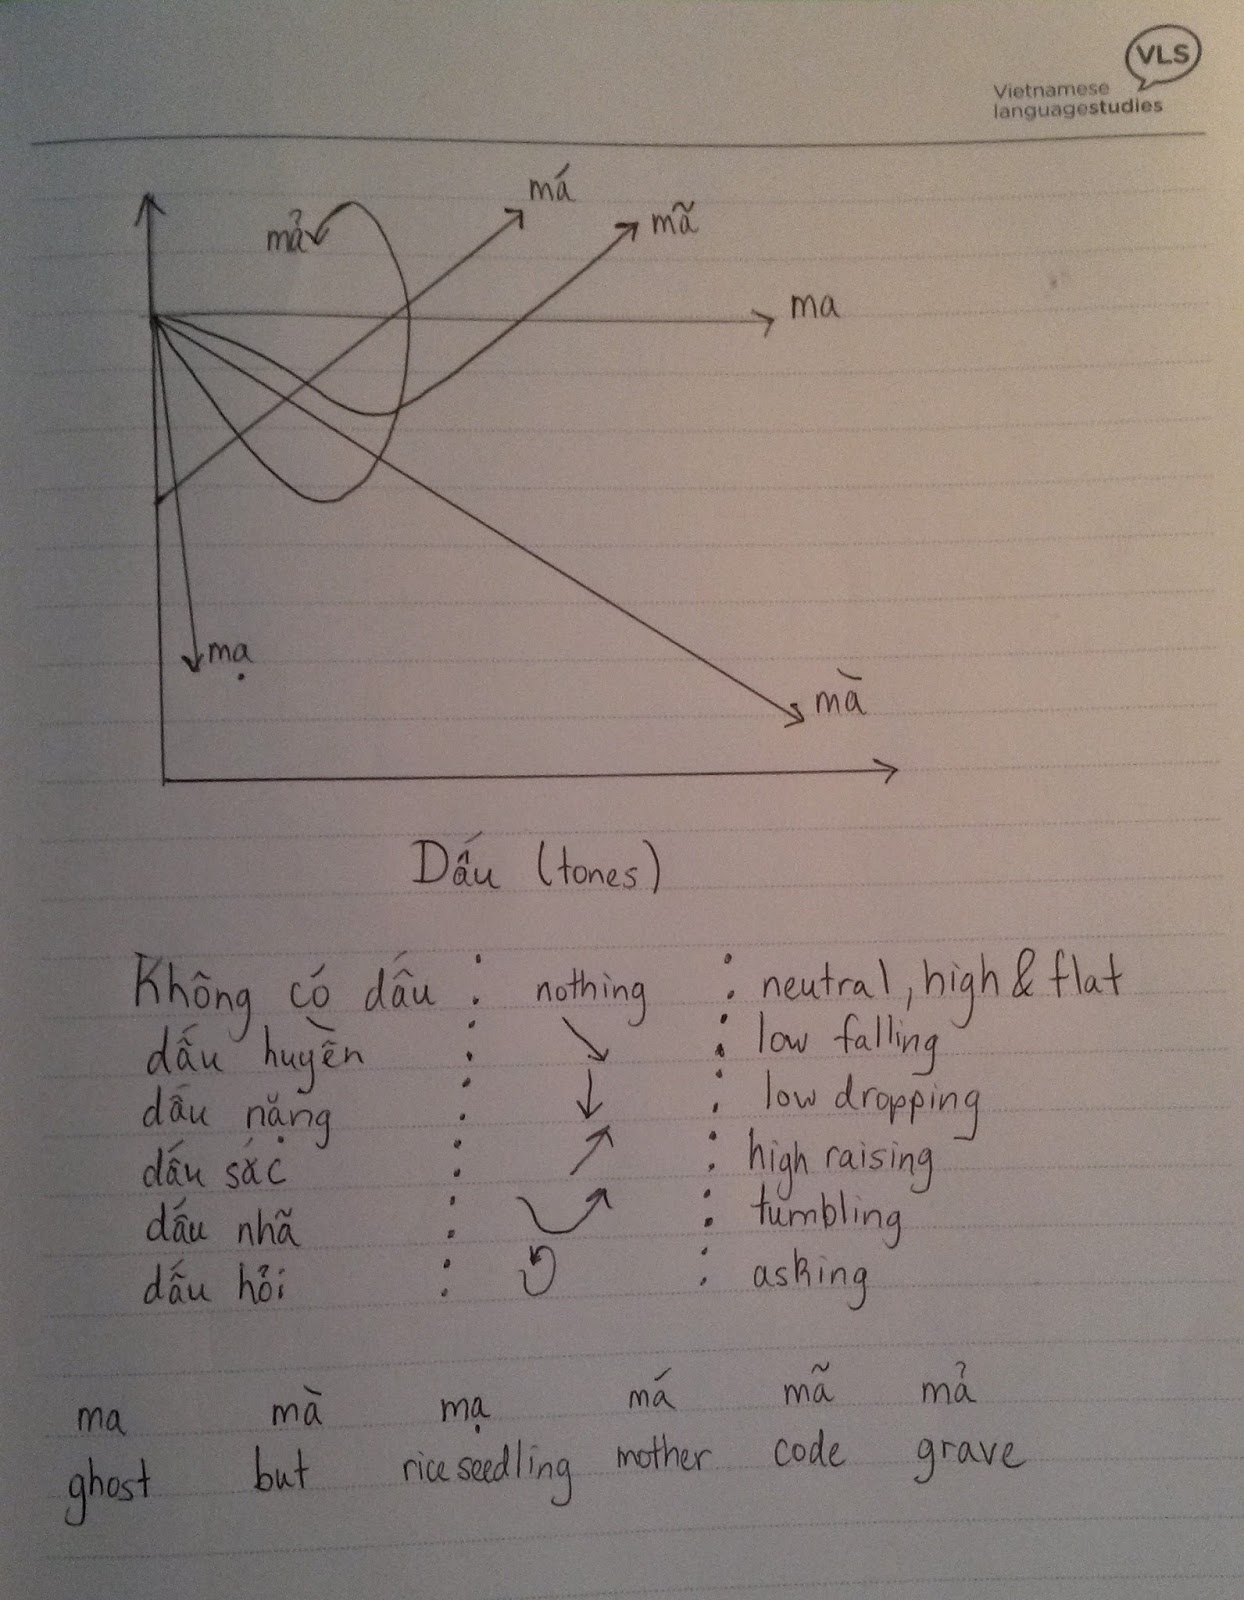 VLS
Vietnamese
languagestudies
má
mã
mả
ma
mạ
mà
Dấu (tones)
Không có dấu : nothing : neutral, high & flat
dấu huyền : ↘ : low falling
dấu nặng : ↓ : low dropping
dấu sắc : ↗ : high raising
dấu nhã : : tumbling
dấu hỏi : : asking
ma mà mạ má mã mả
ghost but rice seedling mother code grave